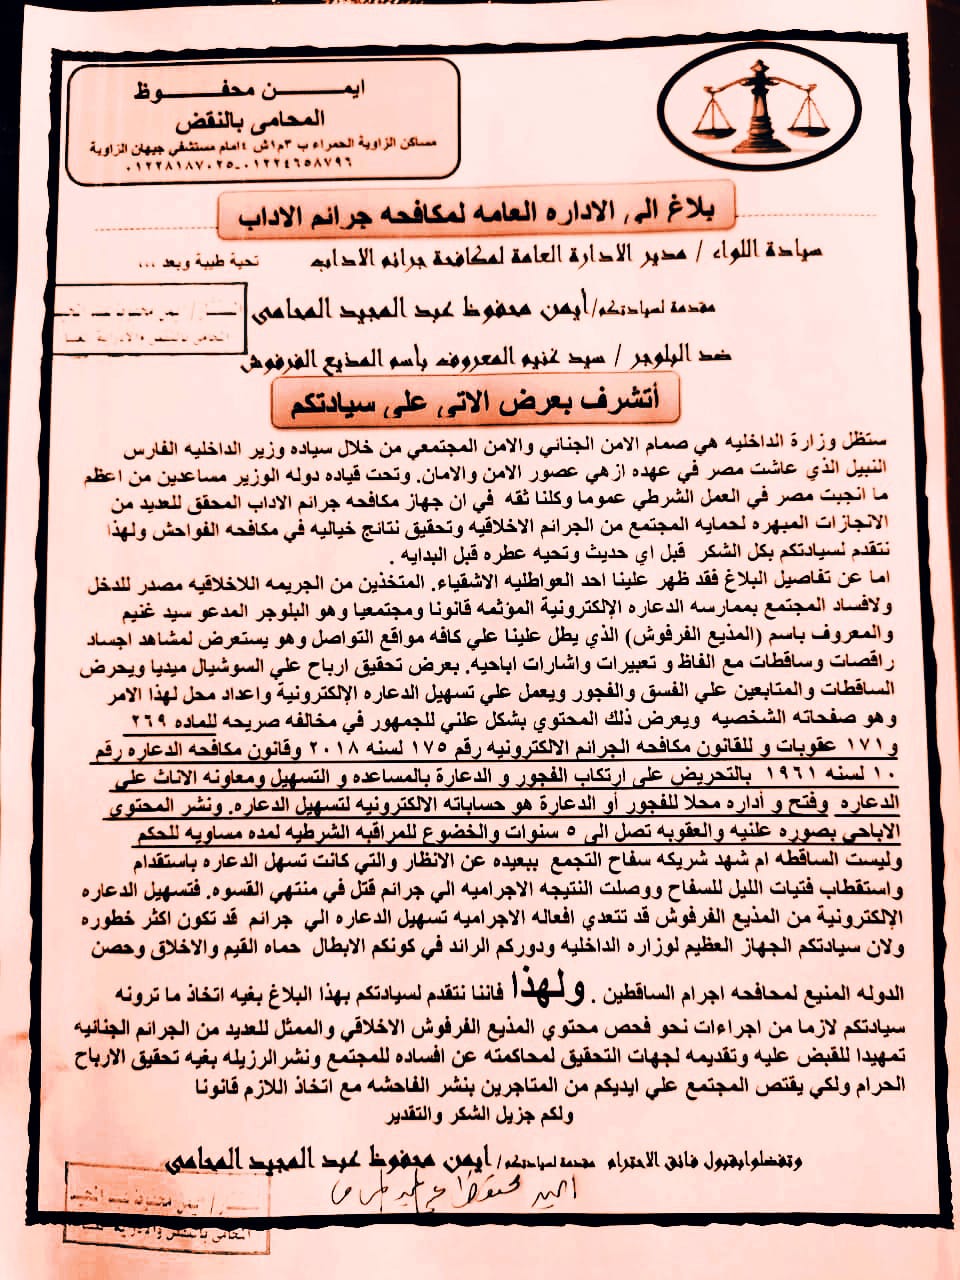 ايمن محفوظ
المحامى بالنقض
مساكن الزاوية الحمراء ب ٣م١ش ٤امام مستشفي جيهان الزاوية
٠١٢٢٨١٨٧٠٢٥-٠١٢٢٤٦٥٨٧٩٦
بلاغ الى الاداره العامه لمكافحه جرائم الاداب
سيادة اللواء / مدير الادارة العامة لمكافحة جرائم الاداب تحية طيبة وبعد ...
مقدمة لسيادتكم/أيمن محفوظ عبد المجيد المحامى
ضد البلوجر / سيد غنيم المعروف بأسم المذيع الفرفوش
أتشرف بعرض الاتى على سيادتكم
ستظل وزارة الداخليه هي صمام الامن الجنائي والامن المجتمعي من خلال سياده وزير الداخليه الفارس
النبيل الذي عاشت مصر في عهده ازهي عصور الامن والامان. وتحت قياده دوله الوزير مساعدين من اعظم
ما انجبت مصر في العمل الشرطي عموما وكلنا ثقه في ان جهاز مكافحه جرائم الاداب المحقق للعديد من
الانجازات المبهره لحمايه المجتمع من الجرائم الاخلاقيه وتحقيق نتائج خياليه في مكافحه الفواحش ولهذا
نتقدم لسيادتكم بكل الشكر قبل اي حديث وتحيه عطره قبل البدايه .
اما عن تفاصيل البلاغ فقد ظهر علينا احد العواطليه الاشقياء. المتخذين من الجريمه اللاخلاقيه مصدر للدخل
ولافساد المجتمع بممارسه الدعاره الإلكترونية المؤثمه قانونا ومجتمعيا وهو البلوجر المدعو سيد غنيم
والمعروف باسم (المذيع الفرفوش) الذي يطل علينا علي كافه مواقع التواصل وهو يستعرض لمشاهد اجساد
راقصات وساقطات مع الفاظ و تعبيرات واشارات اباحيه. بعرض تحقيق ارباح علي السوشيال ميديا ويحرض
الساقطات والمتابعين علي الفسق والفجور ويعمل علي تسهيل الدعاره الإلكترونية واعداد محل لهذا الامر
وهو صفحاته الشخصيه ويعرض ذلك المحتوي بشكل علني للجمهور في مخالفه صريحه للماده ٢٦٩
و١٧١ عقوبات و للقانون مكافحه الجرائم الالكترونيه رقم ١٧٥ لسنه ٢٠١٨ وقانون مكافحه الدعاره رقم
١٠ لسنه ١٩٦١ بالتحريض على ارتكاب الفجور و الدعارة بالمساعده و التسهيل ومعاونه الاناث على
الدعاره وفتح و أداره محلا للفجور أو الدعارة هو حساباته الالكترونيه لتسهيل الدعاره. ونشر المحتوي
الاباحي بصوره علنيه والعقوبه تصل الى ٥ سنوات والخضوع للمراقبه الشرطيه لمده مساويه للحكم
وليست الساقطه ام شهد شريكه سفاح التجمع ببعيده عن الانظار والتي كانت تسهل الدعاره باستقدام
واستقطاب فتيات الليل للسفاح ووصلت النتيجه الاجراميه الي جرائم قتل في منتهي القسوه. فتسهيل الدعاره
الإلكترونية من المذيع الفرفوش قد تتعدي افعاله الاجراميه تسهيل الدعاره الي جرائم قد تكون اكثر خطوره
ولان سيادتكم الجهاز العظيم لوزاره الداخليه ودوركم الرائد في كونكم الابطال حماه القيم والاخلاق وحصن
الدوله المنيع لمحافحه اجرام الساقطين . ولهذا فاننا نتقدم لسيادتكم بهذا البلاغ بغيه اتخاذ ما ترونه
سيادتكم لازما من اجراءات نحو فحص محتوي المذيع الفرفوش الاخلاقي والممثل للعديد من الجرائم الجنائيه
تمهيدا للقبض عليه وتقديمه لجهات التحقيق لمحاكمته عن افساده للمجتمع ونشرالرزيله بغيه تحقيق الارباح
الحرام ولكي يقتص المجتمع علي ايديكم من المتاجرين بنشر الفاحشه مع اتخاذ اللازم قانونا
ولكم جزيل الشكر والتقدير
وتفضلوابقبول فائق الاحترام مقدمة لسيادتكم/ أيمن محفوظ عبد المجيد المحامى